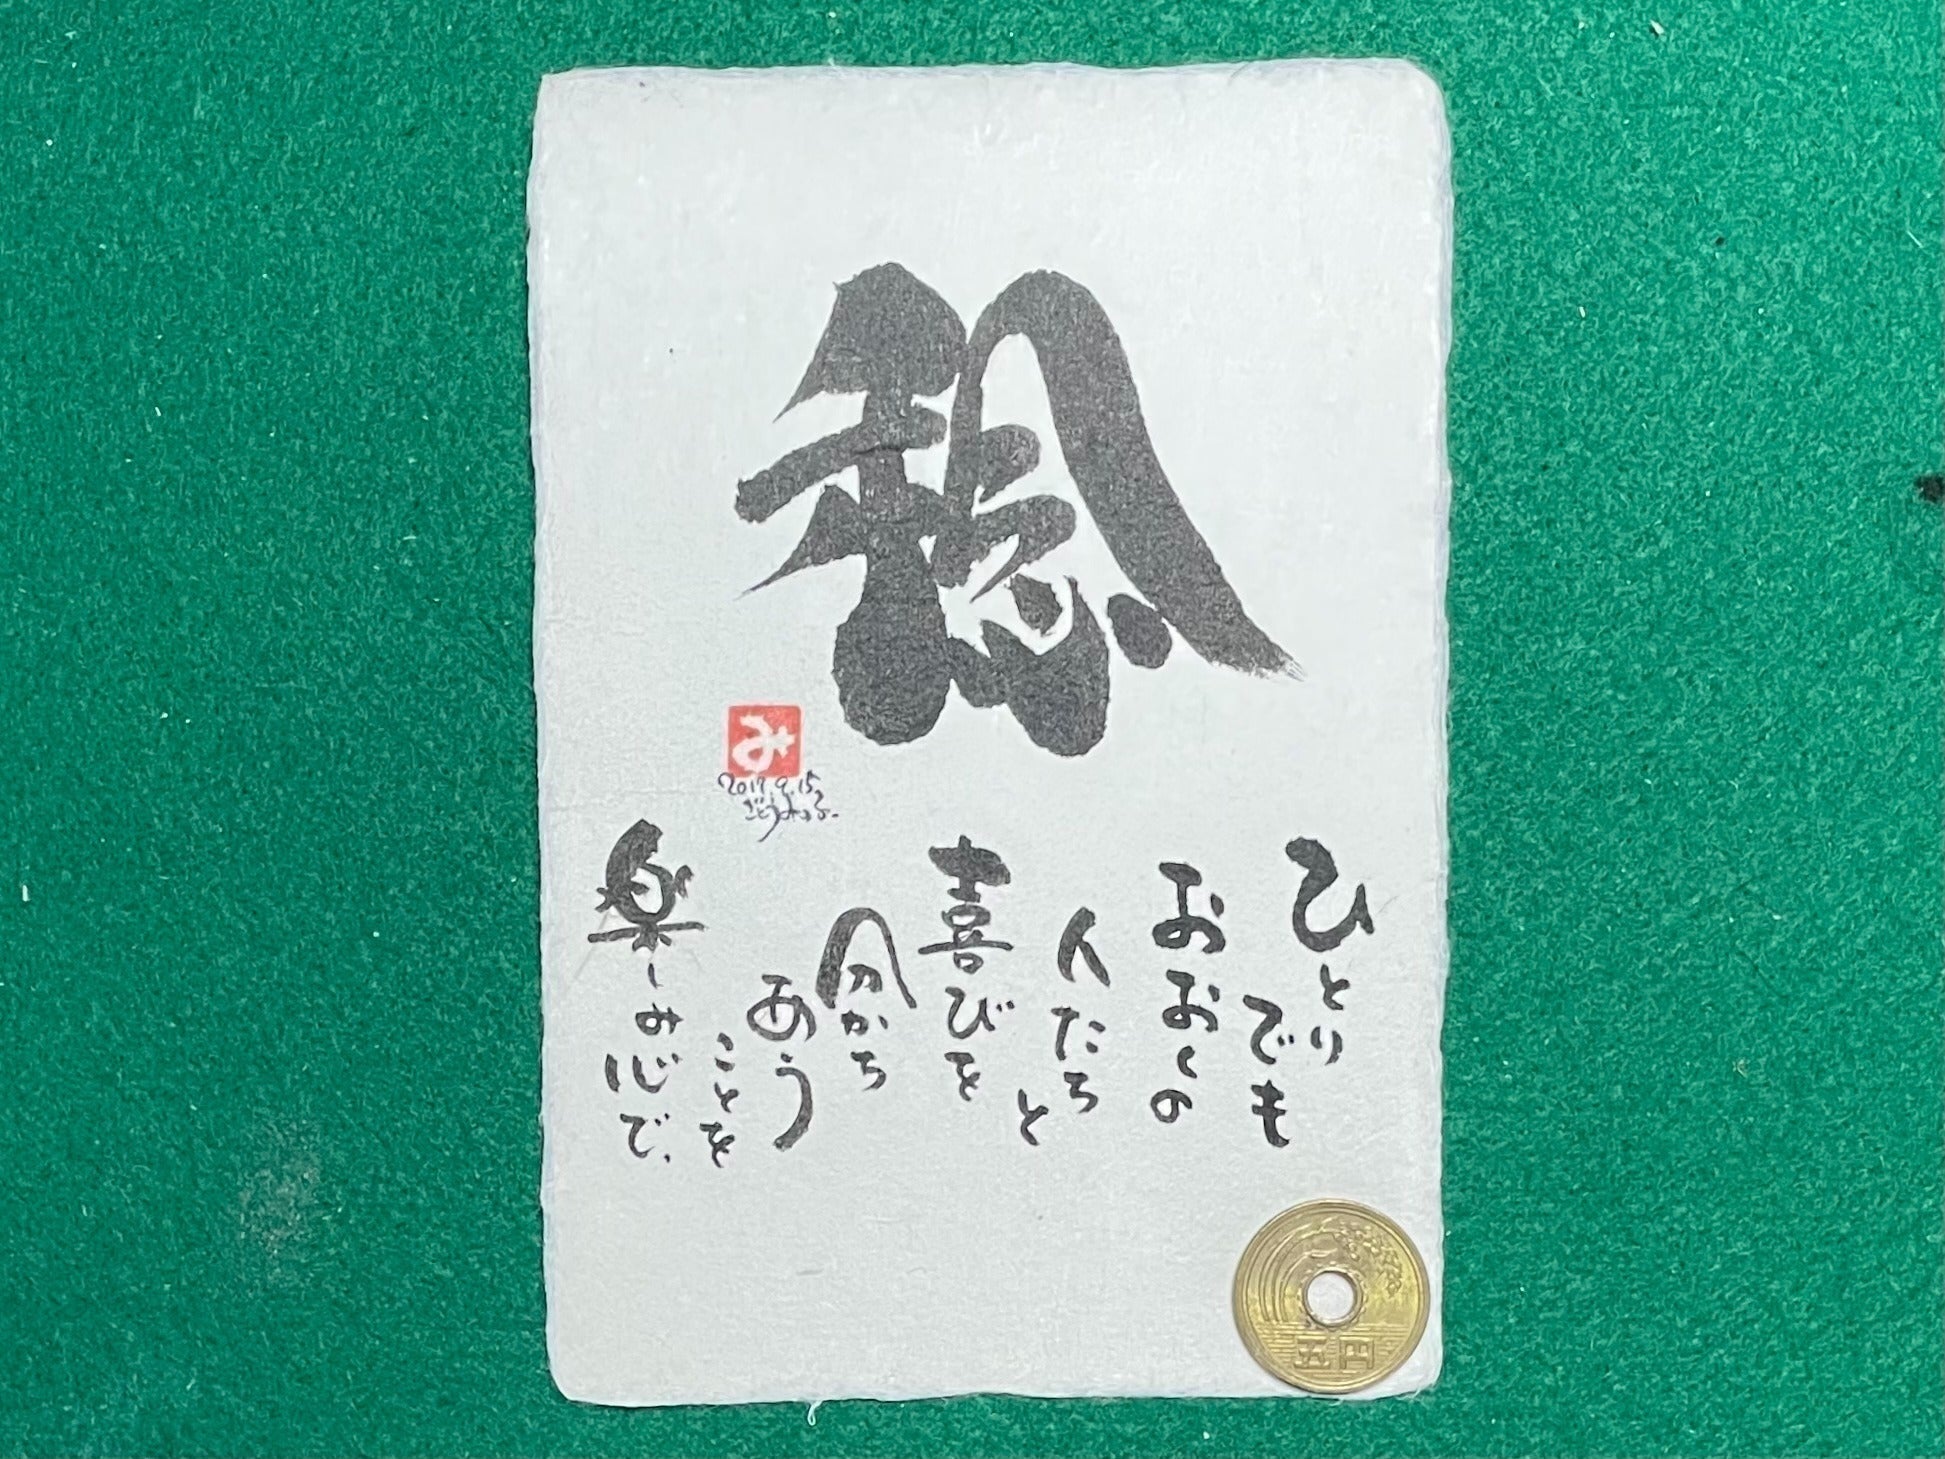 稔
み
ごとうみのる
ひとり
でも
おおくの
人たち
と
喜びを
分かち
あう
ことを
楽しみ心で、
五円